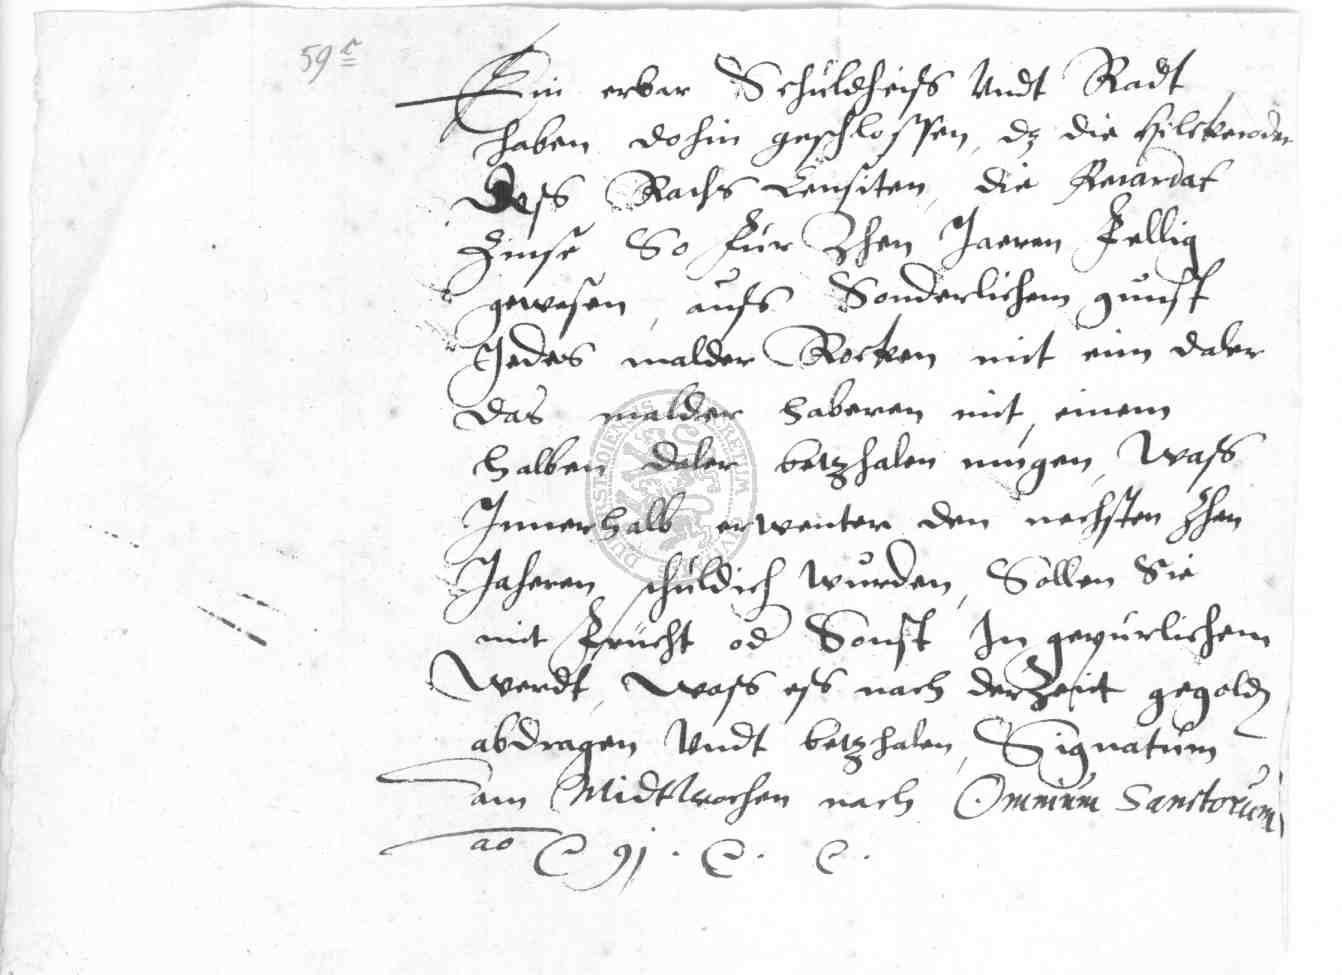 59 c
Ein erbar Schuldheiss Undt Radt
haben dohin geschlossen, dz die
Dess Rachs Censiten, die Retardat
Zinse So fur Zhen Jaeren fellig
gewesen, auss Sonderlichem gunst
Jedes malder Rocken mit eim daler
das malder haberen mit einem
halben daler betzhalen mugen, Wass
Innerhalb erwenter den nechsten Zhen
Jaheren schuldich wurden, Sollen Sie
mit frucht od Sonst In gepurlichem
Werdt, Wass ess nach der Zeit
abdragen Undt betzhalen, Signatum
am Midtwochen nach Omnium Sanctorum
ao 91.